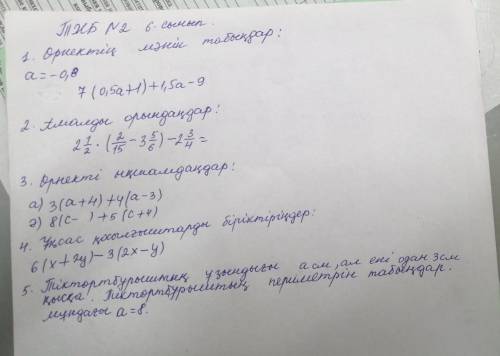 ТЖБ №2 6-сынып.
1. Өрнектің мәнін табыңдар:
a = -0,8
7(0,5a+1)+1,5a-9
2. Амалды орындаңдар:
2 1/2 · (2/15 - 3 5/6) - 2 3/4 =
3. Өрнекті ықшамдаңдар:
а) 3(a+4)+4(a-3)
ә) 8(c- )+5(c+4)
4. Ұқсас қосылғыштарды біріктіріңдер:
6(x+2y)-3(2x-y)
5. Тіктөртбұрыштың ұзындығы a см, ал ені одан 3 см
қысқа. Тіктөртбұрыштың периметрін табыңдар.
мұндағы a=8.